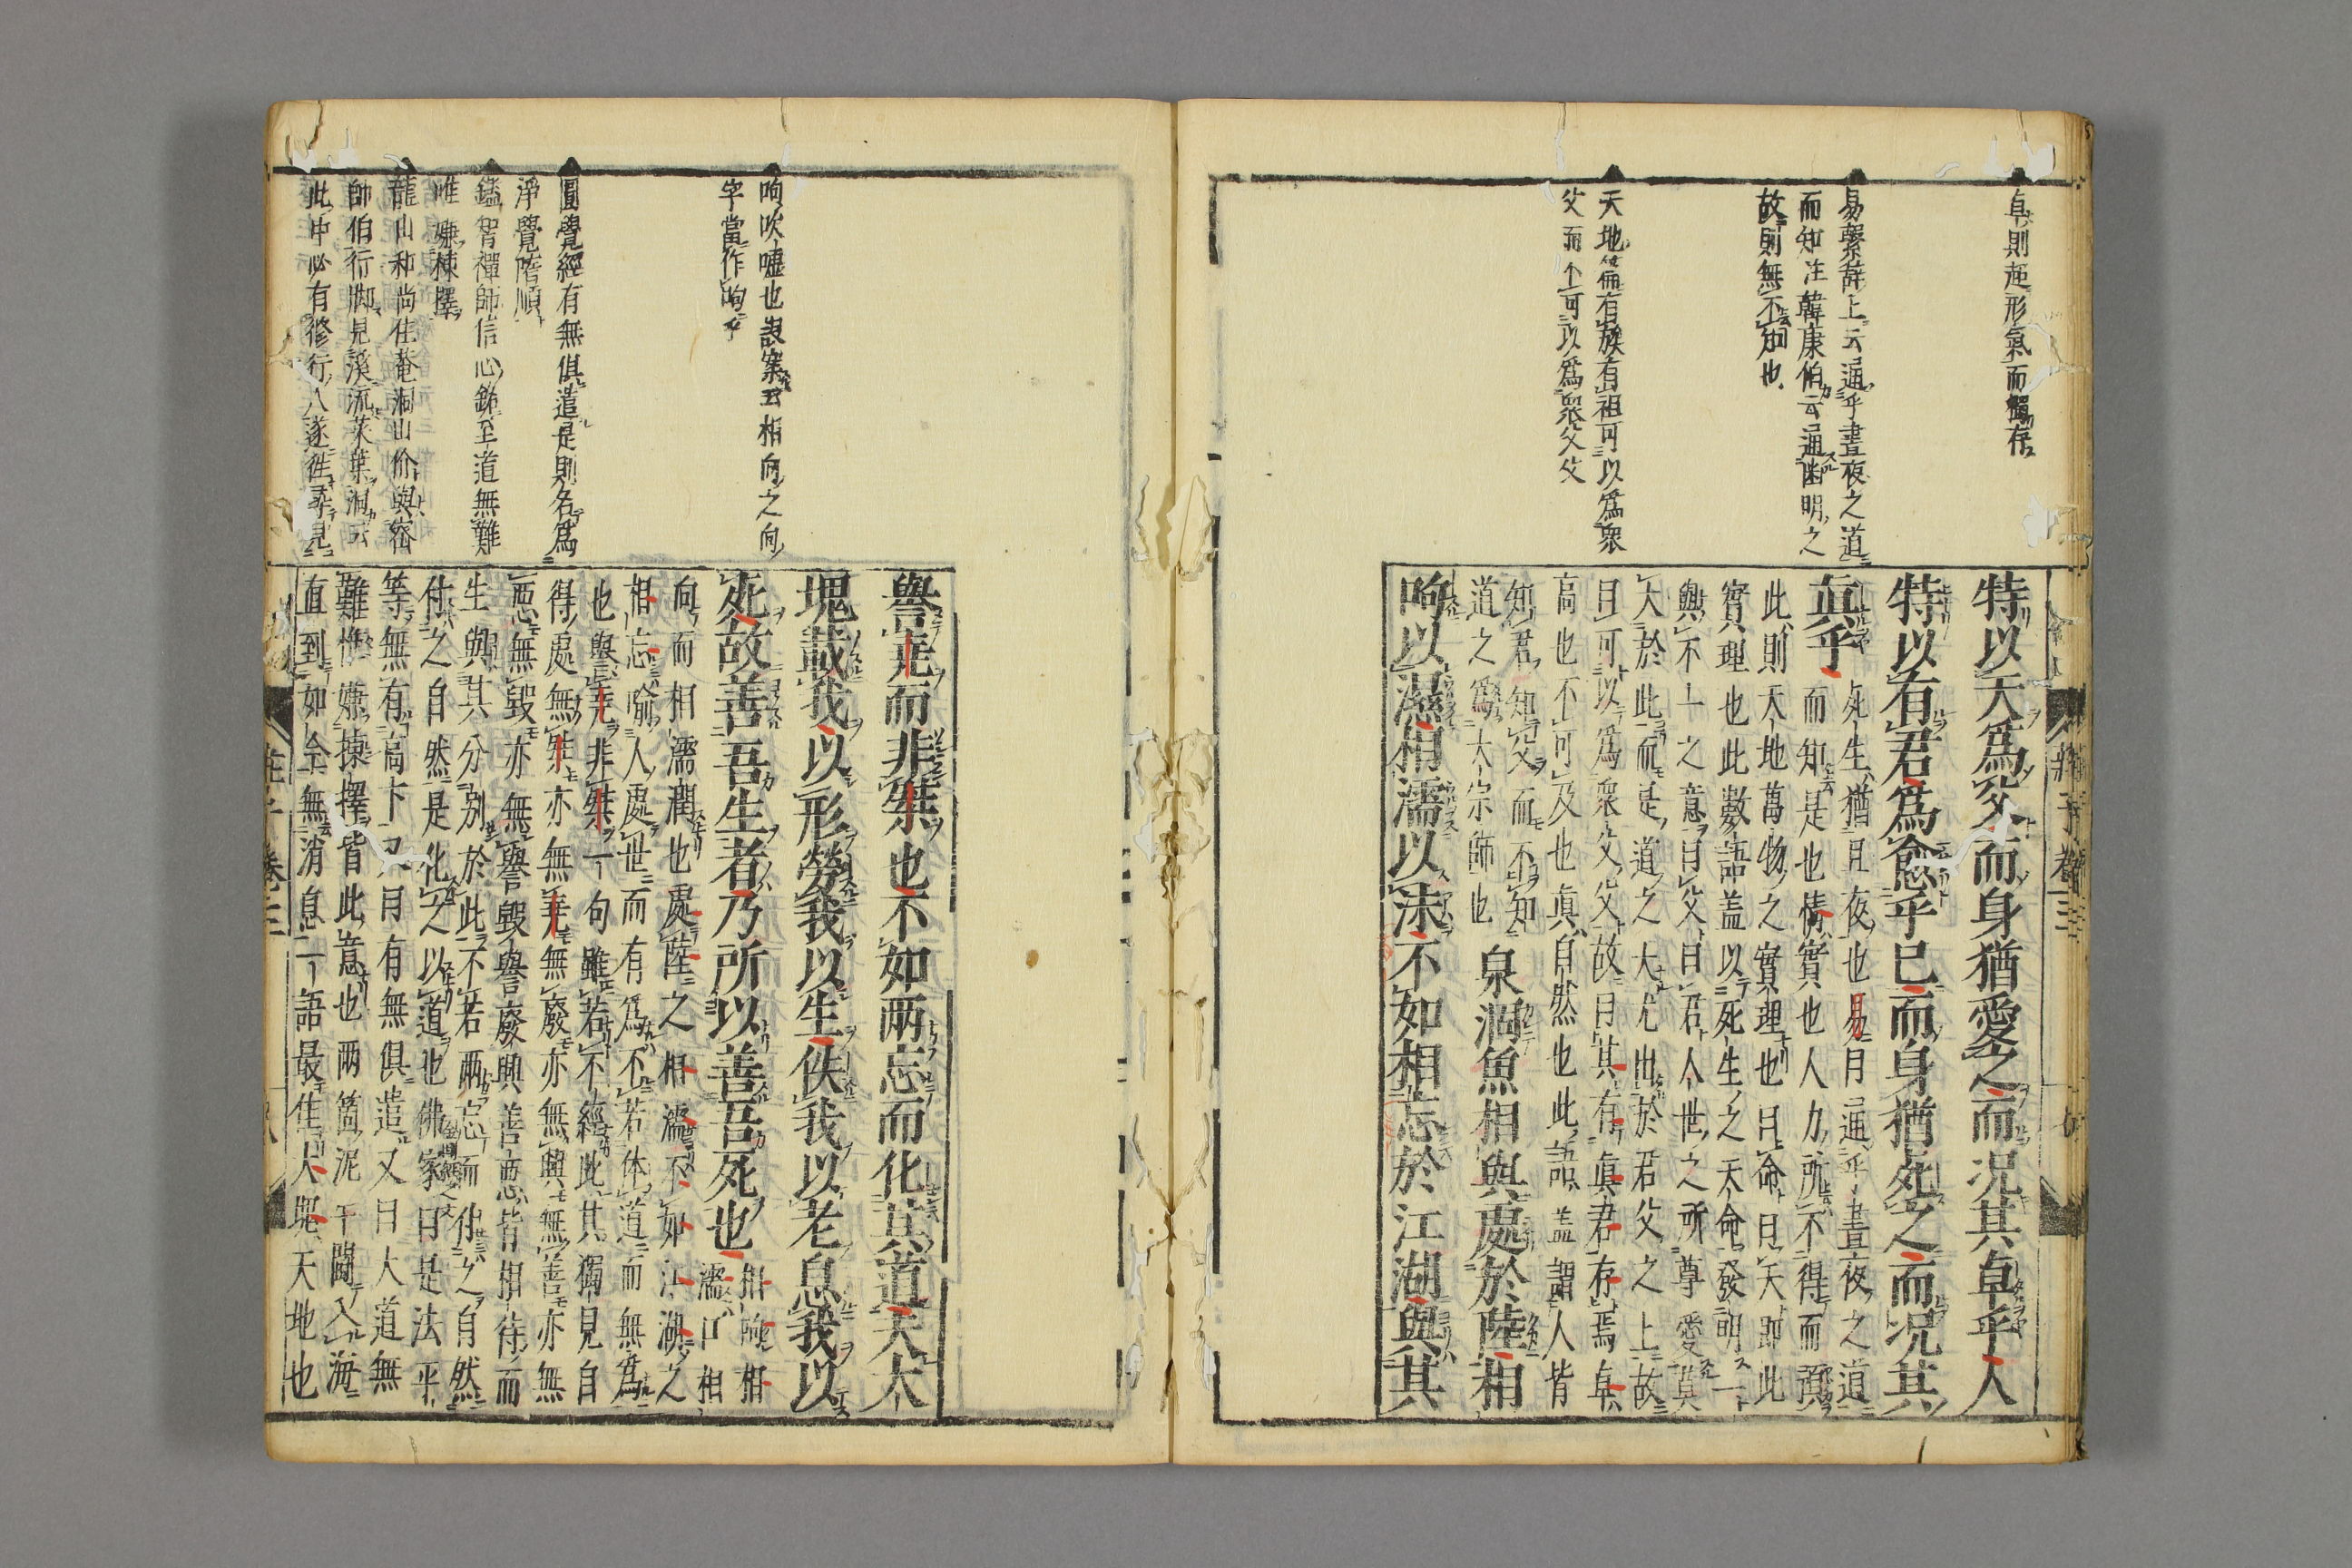 卓則超形氣而獨存
易繫辞上云通乎晝夜之道
而知注韓康伯云通幽明之
故則無不知也
天地篇有族有祖可以爲衆
父而不可以爲衆父父
特以天爲父而身猶愛之而况其卓乎人
特以有君爲愈乎已而身猶死之而况其
眞乎 死生猶日夜也易曰通乎晝夜之道
而知是也情實也人力所不得而預
此則天地萬物之實理也曰命曰天即此
實理也此數語盖以死生之天命發明一
與不一之意曰父曰君人世之所尊愛莫
大於此而是道之大尤出於君父之上故
曰可以爲衆父父故曰其有眞君存焉卓
高也不可及也眞自然也此語盖謂人皆
知君知父而不知
道之爲大宗師也 泉涸魚相與處於陸相
呴以濕相濡以沫不如相忘於江湖與其
呴吹嘘也説案云相向之向
字當作呴乎
圓覺經有無俱遣是則名爲
淨覺隨順
鑑智禪師信心銘至道無難
唯嫌揀擇
龍山和尚住菴洞山价與密
師伯行脚見溪流菜葉洞云
此中必有修行人遂往尋見
譽堯而非桀也不如兩忘而化其道夫大
塊載我以形勞我以生佚我以老息我以
死故善吾生者乃所以善吾死也 相呴相
濡口相
向而相濡潤也處陸之相濡不如江湖之
相忘喩人處世而有爲不若体道而無爲
也與譽堯非桀一句雖若不經此其獨見自
得處無桀亦無堯無廢亦無興無善亦無
惡無毀亦無譽毀譽廢興善惡皆相待而
生與其分別於此不若兩忘而付之自然
付之自然是化之以道也佛家曰是法平
等無有高下又曰有無俱遣又曰大道無
難惟嫌揀擇皆此意也兩箇泥牛鬪入海
直到如今無消息一語最佳大塊天地也